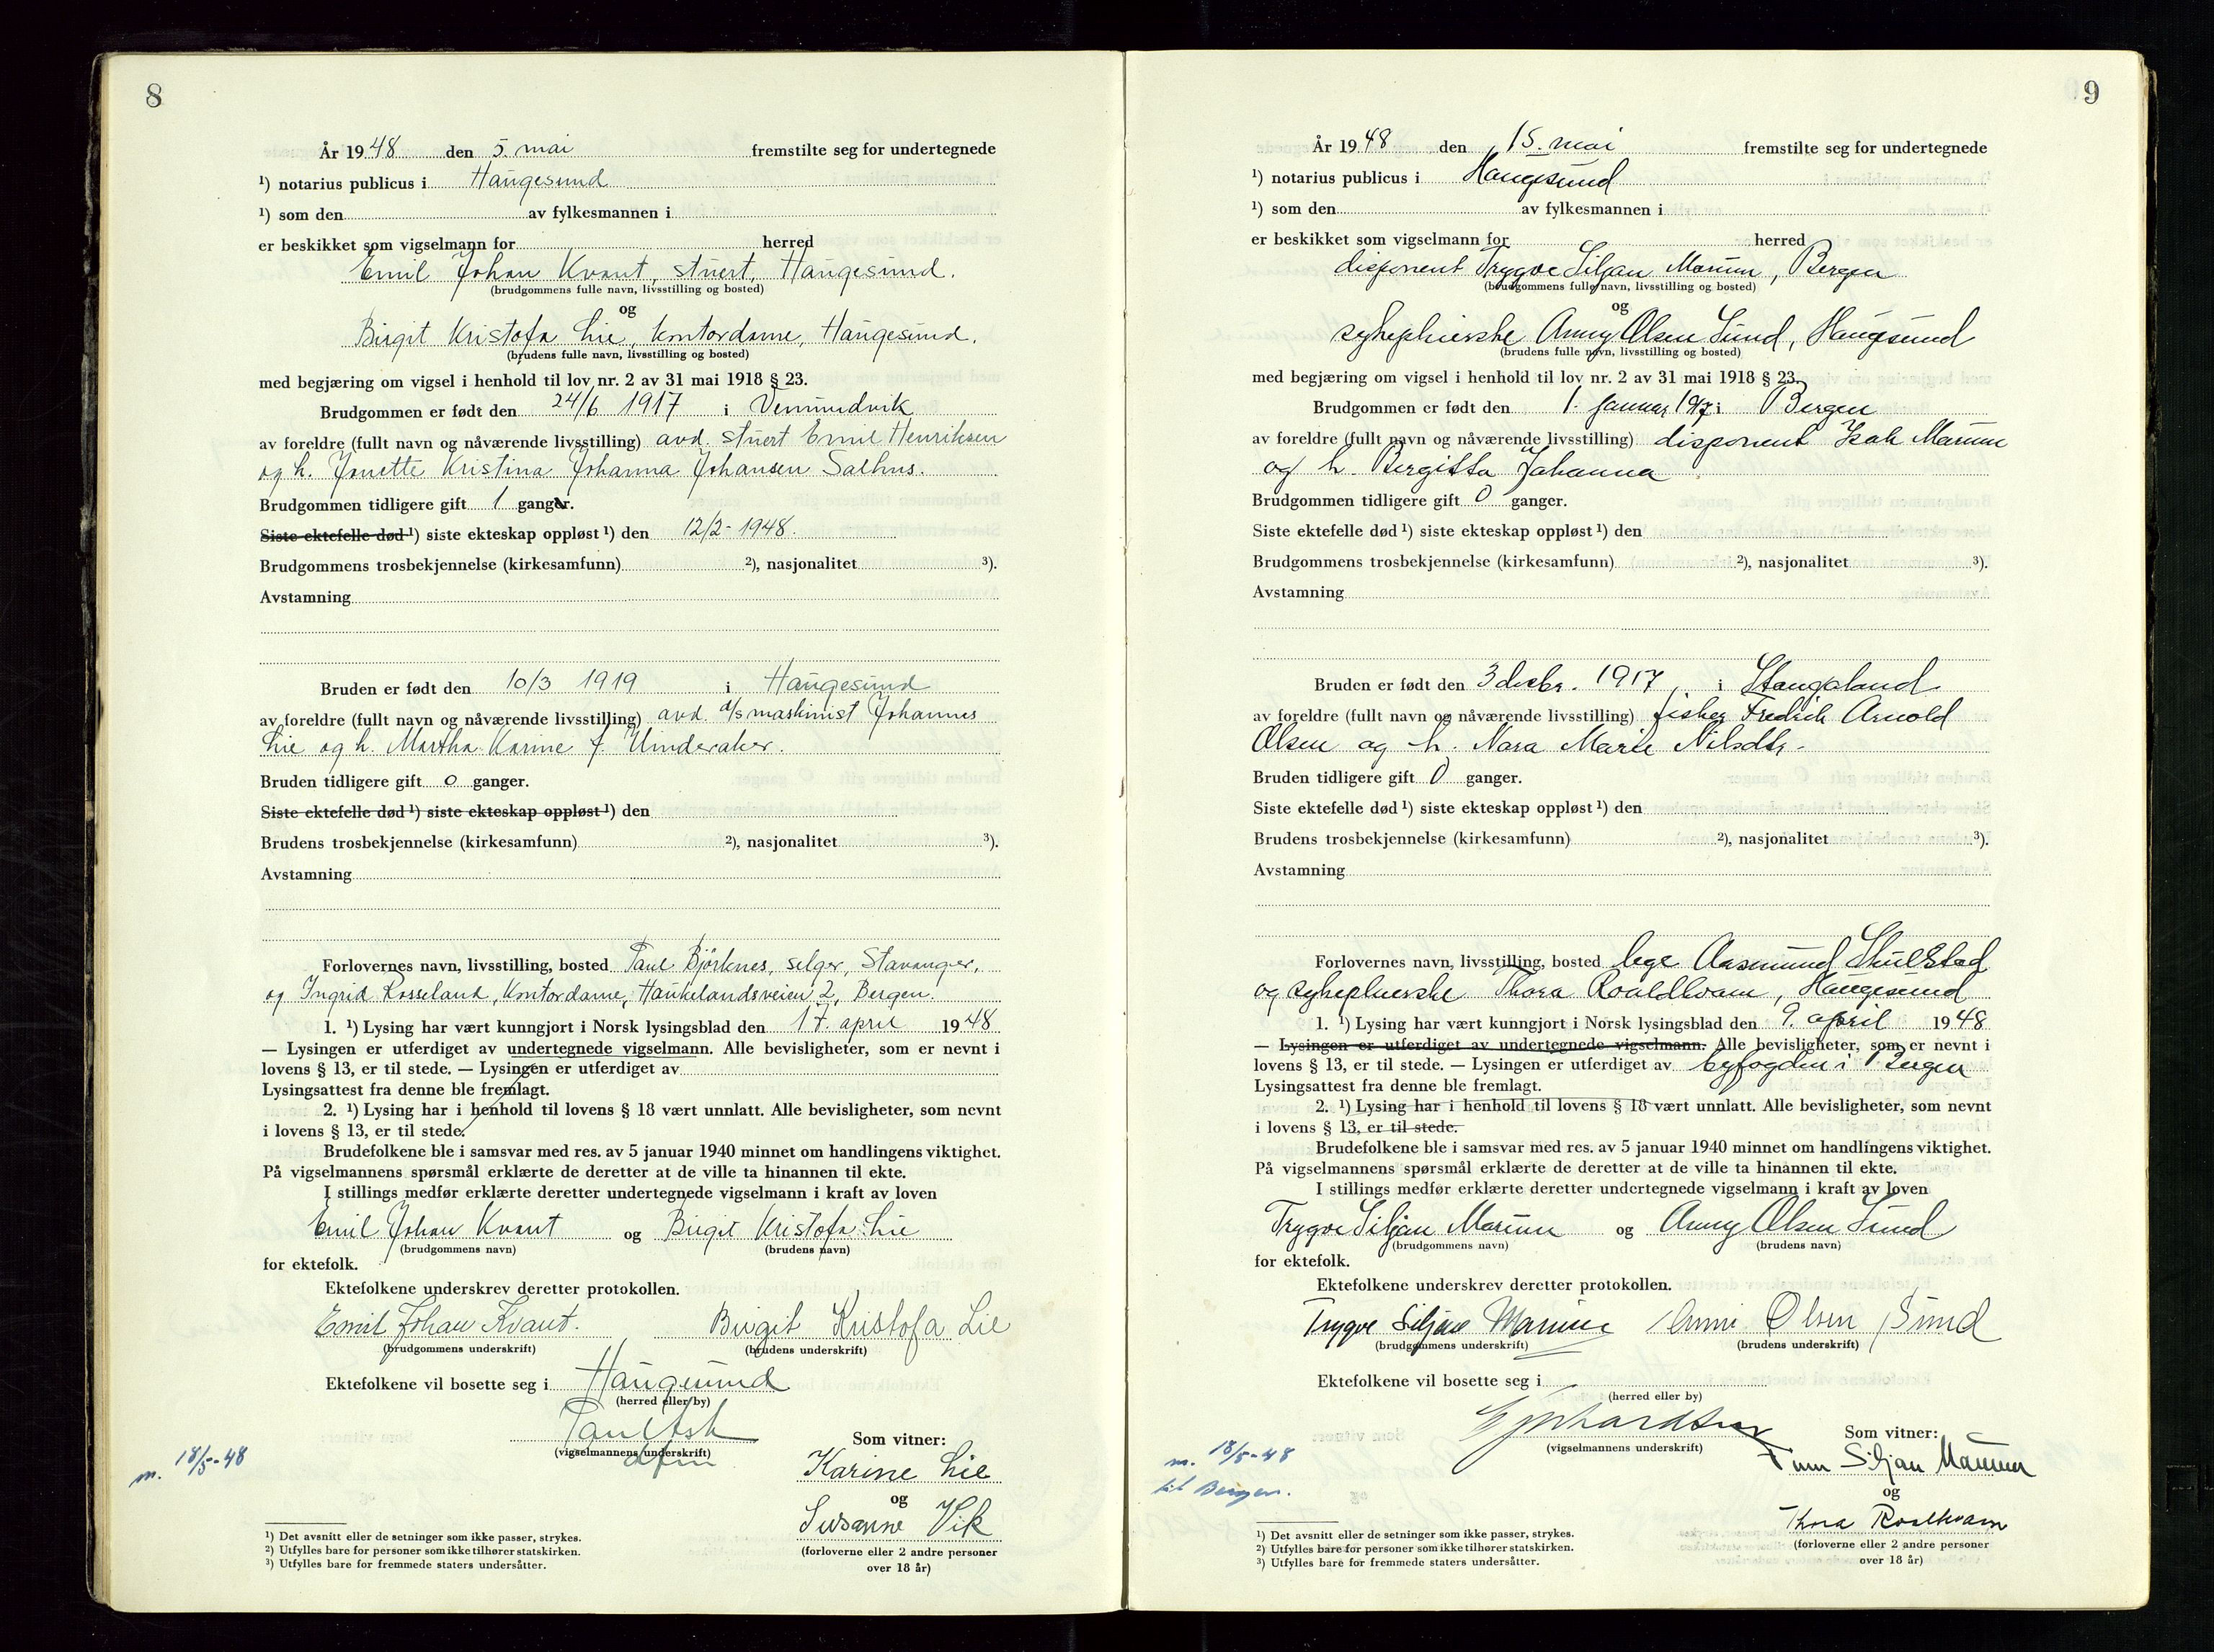 8
År 1948 den 5. mai fremstilte seg for undertegnede
¹) notarius publicus i Haugesund
¹) som den av fylkesmannen i
er beskikket som vigselmann for herred
Emil Johan Kvant, stuert, Haugesund.
(brudgommens fulle navn, livsstilling og bosted)
og
Birgit Kristofa Lie, kontordame, Haugesund.
(brudens fulle navn, livsstilling og bosted)
med begjæring om vigsel i henhold til lov nr. 2 av 31 mai 1918 § 23.
Brudgommen er født den 24/6 1917 i Vemundvik
av foreldre (fullt navn og nåværende livsstilling) avd. stuert Emil Henriksen
og h. Jonette Kristina Johanna Johansen Salhus.
Brudgommen tidligere gift 1 ganger.
Siste ektefelle død ¹) siste ekteskap oppløst ¹) den 12/2-1948.
Brudgommens trosbekjennelse (kirkesamfunn) ²), nasjonalitet ³).
Avstamning
Bruden er født den 10/3 1919 i Haugesund
av foreldre (fullt navn og nåværende livsstilling) avd. d/s maskinist Johannes
Lie og h. Martha Karine f. Vinderaker.
Bruden tidligere gift 0 ganger.
Siste ektefelle død ¹) siste ekteskap oppløst ¹) den
Brudens trosbekjennelse (kirkesamfunn) ²), nasjonalitet ³).
Avstamning
Forlovernes navn, livsstilling, bosted Paul Björknes, selger, Stavanger,
og Ingrid Rosseland, kontordame, Haukelandsveien 2, Bergen.
1. ¹) Lysing har vært kunngjort i Norsk lysingsblad den 17. april 1948
— Lysingen er utferdiget av undertegnede vigselmann. Alle bevisligheter, som er nevnt i
lovens § 13, er til stede. — Lysingen er utferdiget av
Lysingsattest fra denne ble fremlagt.
2. ¹) Lysing har i henhold til lovens § 18 vært unnlatt. Alle bevisligheter, som nevnt
i lovens § 13, er til stede.
Brudefolkene ble i samsvar med res. av 5 januar 1940 minnet om handlingens viktighet.
På vigselmannens spørsmål erklærte de deretter at de ville ta hinannen til ekte.
I stillings medfør erklærte deretter undertegnede vigselmann i kraft av loven
Emil Johan Kvant og Birgit Kristofa Lie
(brudgommens navn) (brudens navn)
for ektefolk.
Ektefolkene underskrev deretter protokollen.
Emil Johan Kvant. Birgit Kristofa Lie
(brudgommens underskrift) (brudens underskrift)
Ektefolkene vil bosette seg i Haugesund
(herred eller by)
Paul Ask
(vigselmannens underskrift)
Som vitner:
m. 18/5-48
Karine Lie
og
Susanne Vik
(forloverne eller 2 andre personer
over 18 år)
¹) Det avsnitt eller de setninger som ikke passer, strykes.
²) Utfylles bare for personer som ikke tilhører statskirken.
³) Utfylles bare for fremmede staters undersåtter.
9
År 1948 den 15. mai fremstilte seg for undertegnede
¹) notarius publicus i Haugesund
¹) som den av fylkesmannen i
er beskikket som vigselmann for herred
disponent Trygve Siljan Marum, Bergen
(brudgommens fulle navn, livsstilling og bosted)
og
sykepleierske Anny Olsen Sund, Haugesund
(brudens fulle navn, livsstilling og bosted)
med begjæring om vigsel i henhold til lov nr. 2 av 31 mai 1918 § 23.
Brudgommen er født den 1. januar 1917 i Bergen
av foreldre (fullt navn og nåværende livsstilling) disponent Isak Marum
og h. Bergitta Johanna
Brudgommen tidligere gift 0 ganger.
Siste ektefelle død ¹) siste ekteskap oppløst ¹) den
Brudgommens trosbekjennelse (kirkesamfunn) ²), nasjonalitet ³).
Avstamning
Bruden er født den 3 decbr. 1917 i Stangaland
av foreldre (fullt navn og nåværende livsstilling) fisker Fredrik Arnold
Olsen og h. Nora Marie Nilsdtr.
Bruden tidligere gift 0 ganger.
Siste ektefelle død ¹) siste ekteskap oppløst ¹) den
Brudens trosbekjennelse (kirkesamfunn) ²), nasjonalitet ³).
Avstamning
Forlovernes navn, livsstilling, bosted lege Aasmund Skulstad
og sykepleierske Thora Roaldkvam, Haugesund
1. ¹) Lysing har vært kunngjort i Norsk lysingsblad den 9. april 1948
— Lysingen er utferdiget av undertegnede vigselmann. Alle bevisligheter, som er nevnt i
lovens § 13, er til stede. — Lysingen er utferdiget av byfogden i Bergen
Lysingsattest fra denne ble fremlagt.
2. ¹) Lysing har i henhold til lovens § 18 vært unnlatt. Alle bevisligheter, som nevnt
i lovens § 13, er til stede.
Brudefolkene ble i samsvar med res. av 5 januar 1940 minnet om handlingens viktighet.
På vigselmannens spørsmål erklærte de deretter at de ville ta hinannen til ekte.
I stillings medfør erklærte deretter undertegnede vigselmann i kraft av loven
Trygve Siljan Marum og Anny Olsen Sund
(brudgommens navn) (brudens navn)
for ektefolk.
Ektefolkene underskrev deretter protokollen.
Trygve Siljan Marum Anni Olsen Sund
(brudgommens underskrift) (brudens underskrift)
Ektefolkene vil bosette seg i
(herred eller by)
(vigselmannens underskrift)
Som vitner:
m. 18/5-48
til Bergen.
Siljan Marum
og
Thora Roaldkvam
(forloverne eller 2 andre personer
over 18 år)
¹) Det avsnitt eller de setninger som ikke passer, strykes.
²) Utfylles bare for personer som ikke tilhører statskirken.
³) Utfylles bare for fremmede staters undersåtter.